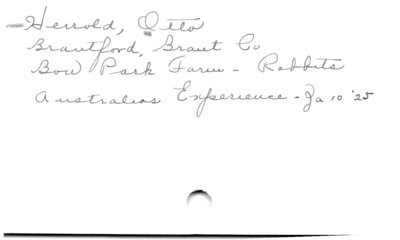 Herrold, Otto
Brantford, Brant Co
Bow Park Farm - Rabbits
Australias Experience - Ja 10 '25